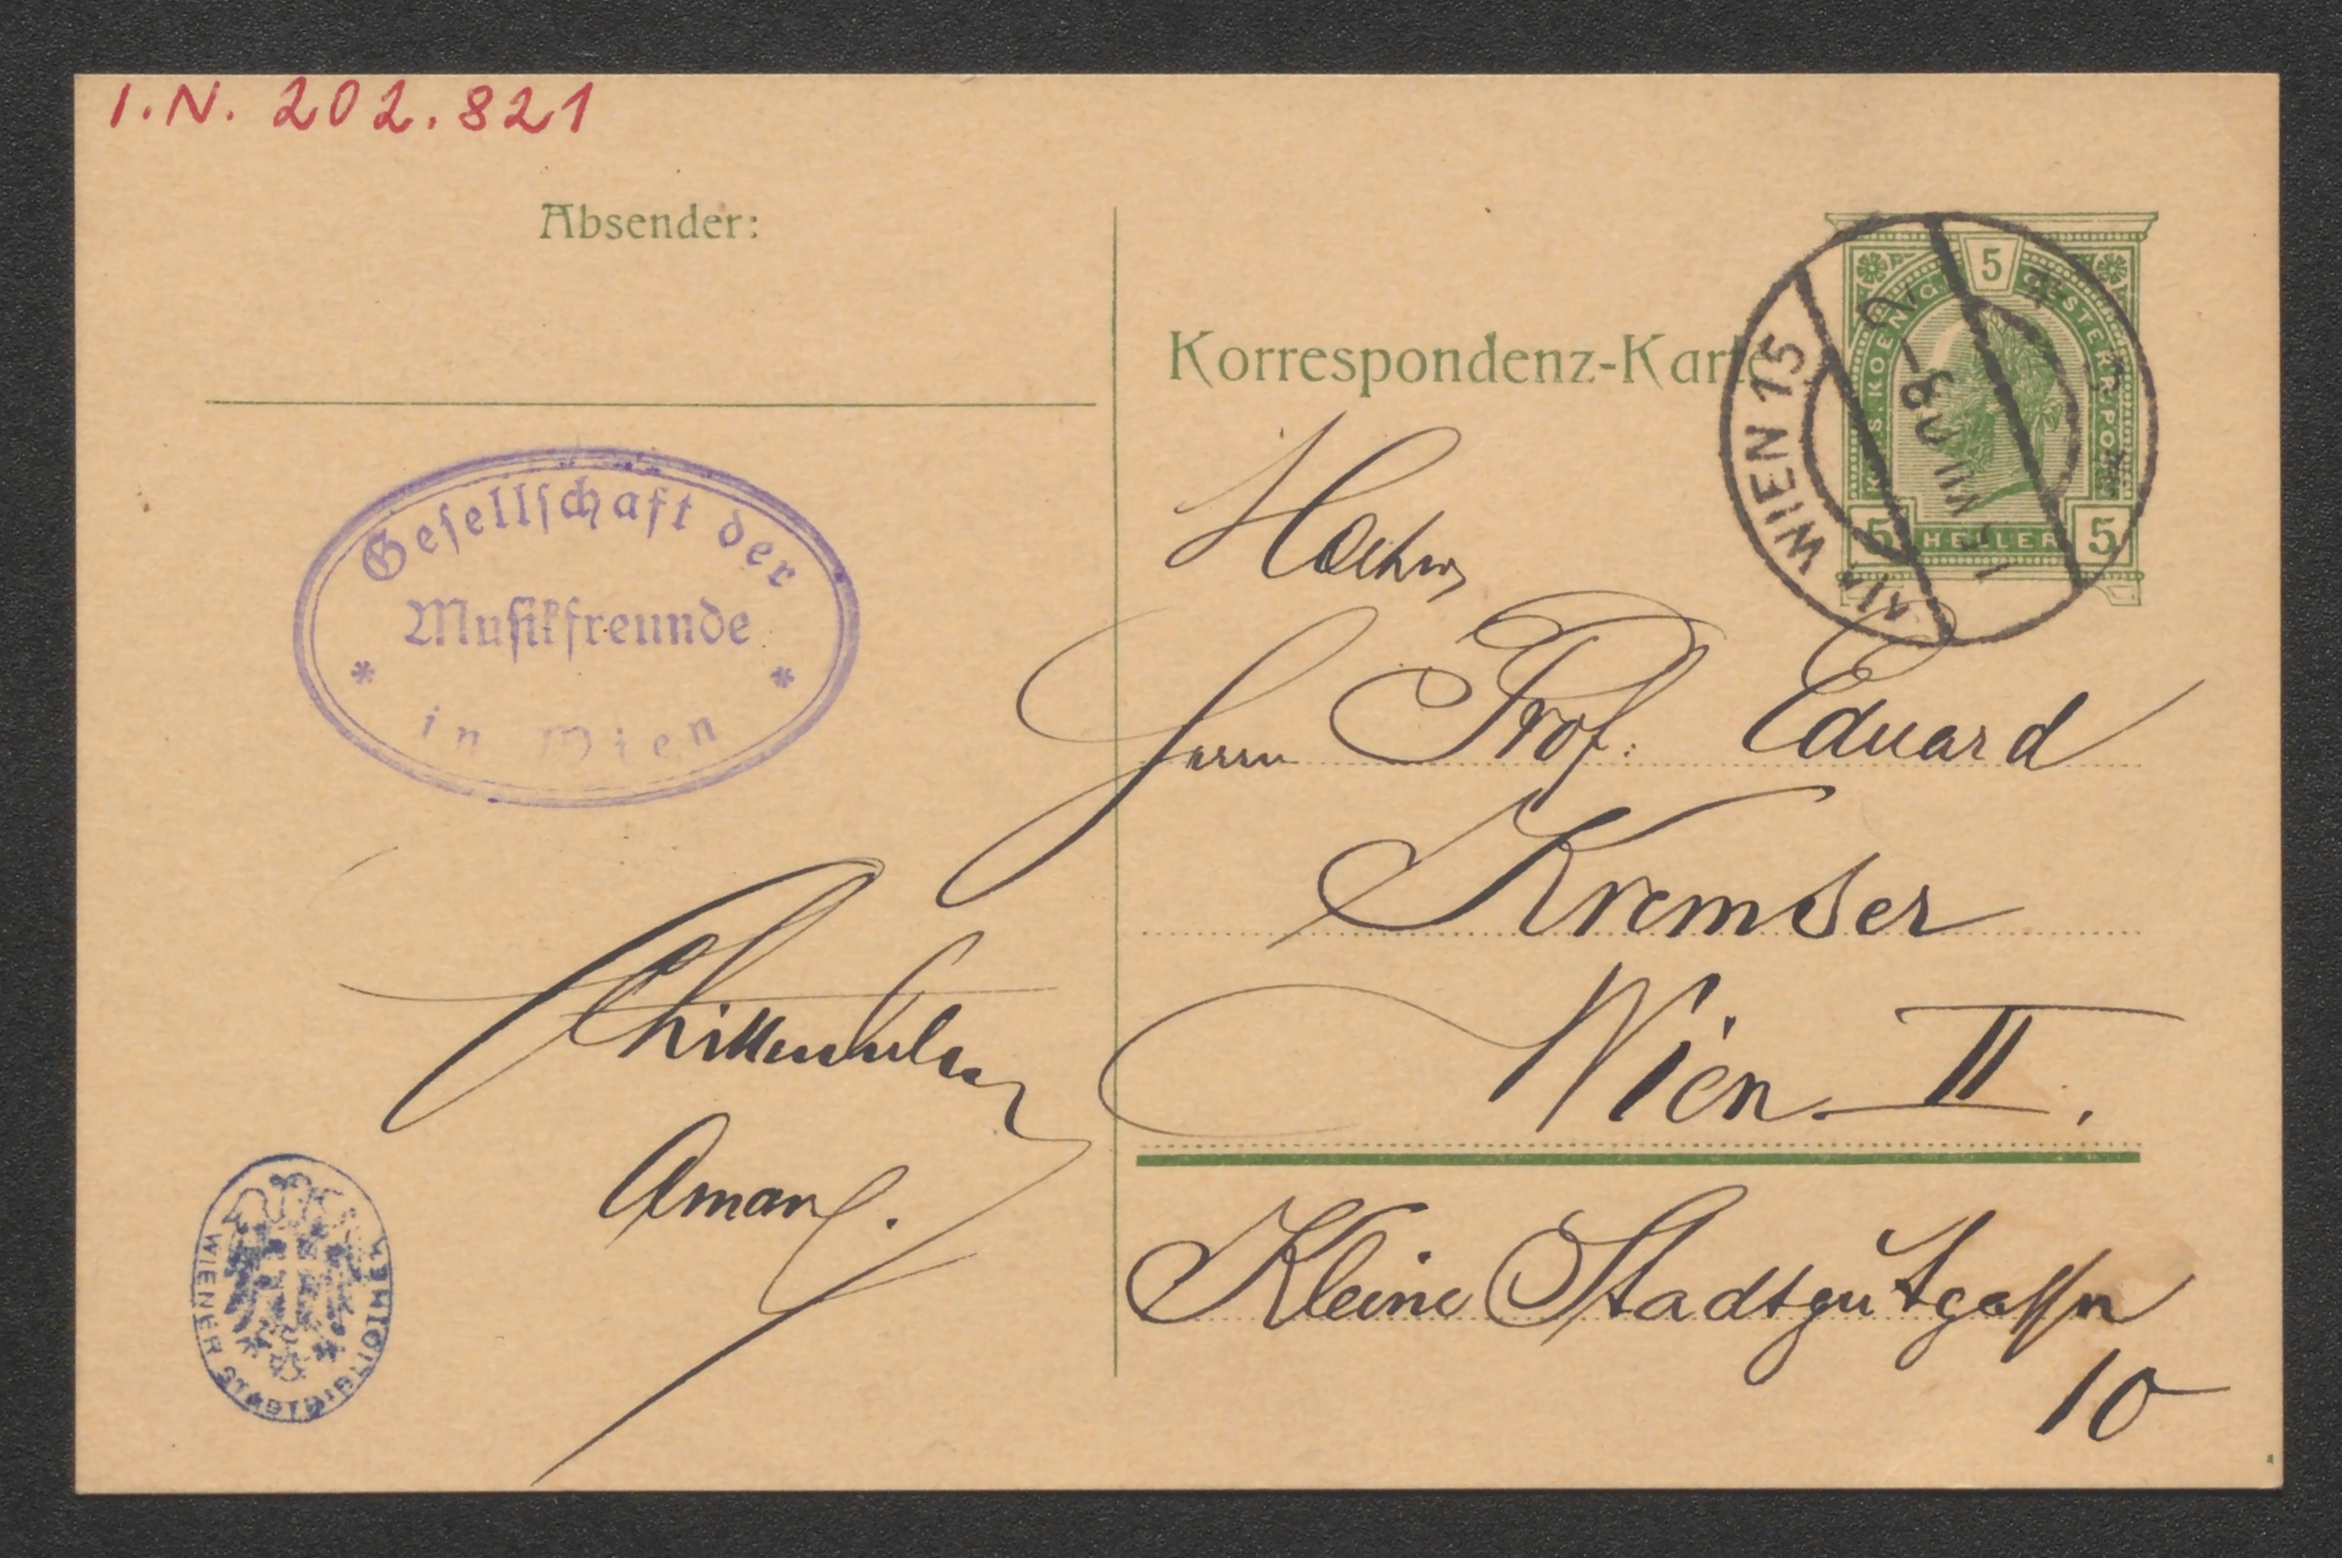 I.N. 202.821
Absender:
Gesellschaft der
Musikfreunde
in Wien
Aman.
WIENER STADTBIBLIOTHEK
Korrespondenz-Karte
5
K. K. OESTERR. POST
5 HELLER 5
WIEN 15
Herrn Prof. Eduard
Kremser
Wien II.
Kleine Stadtgutgasse
10